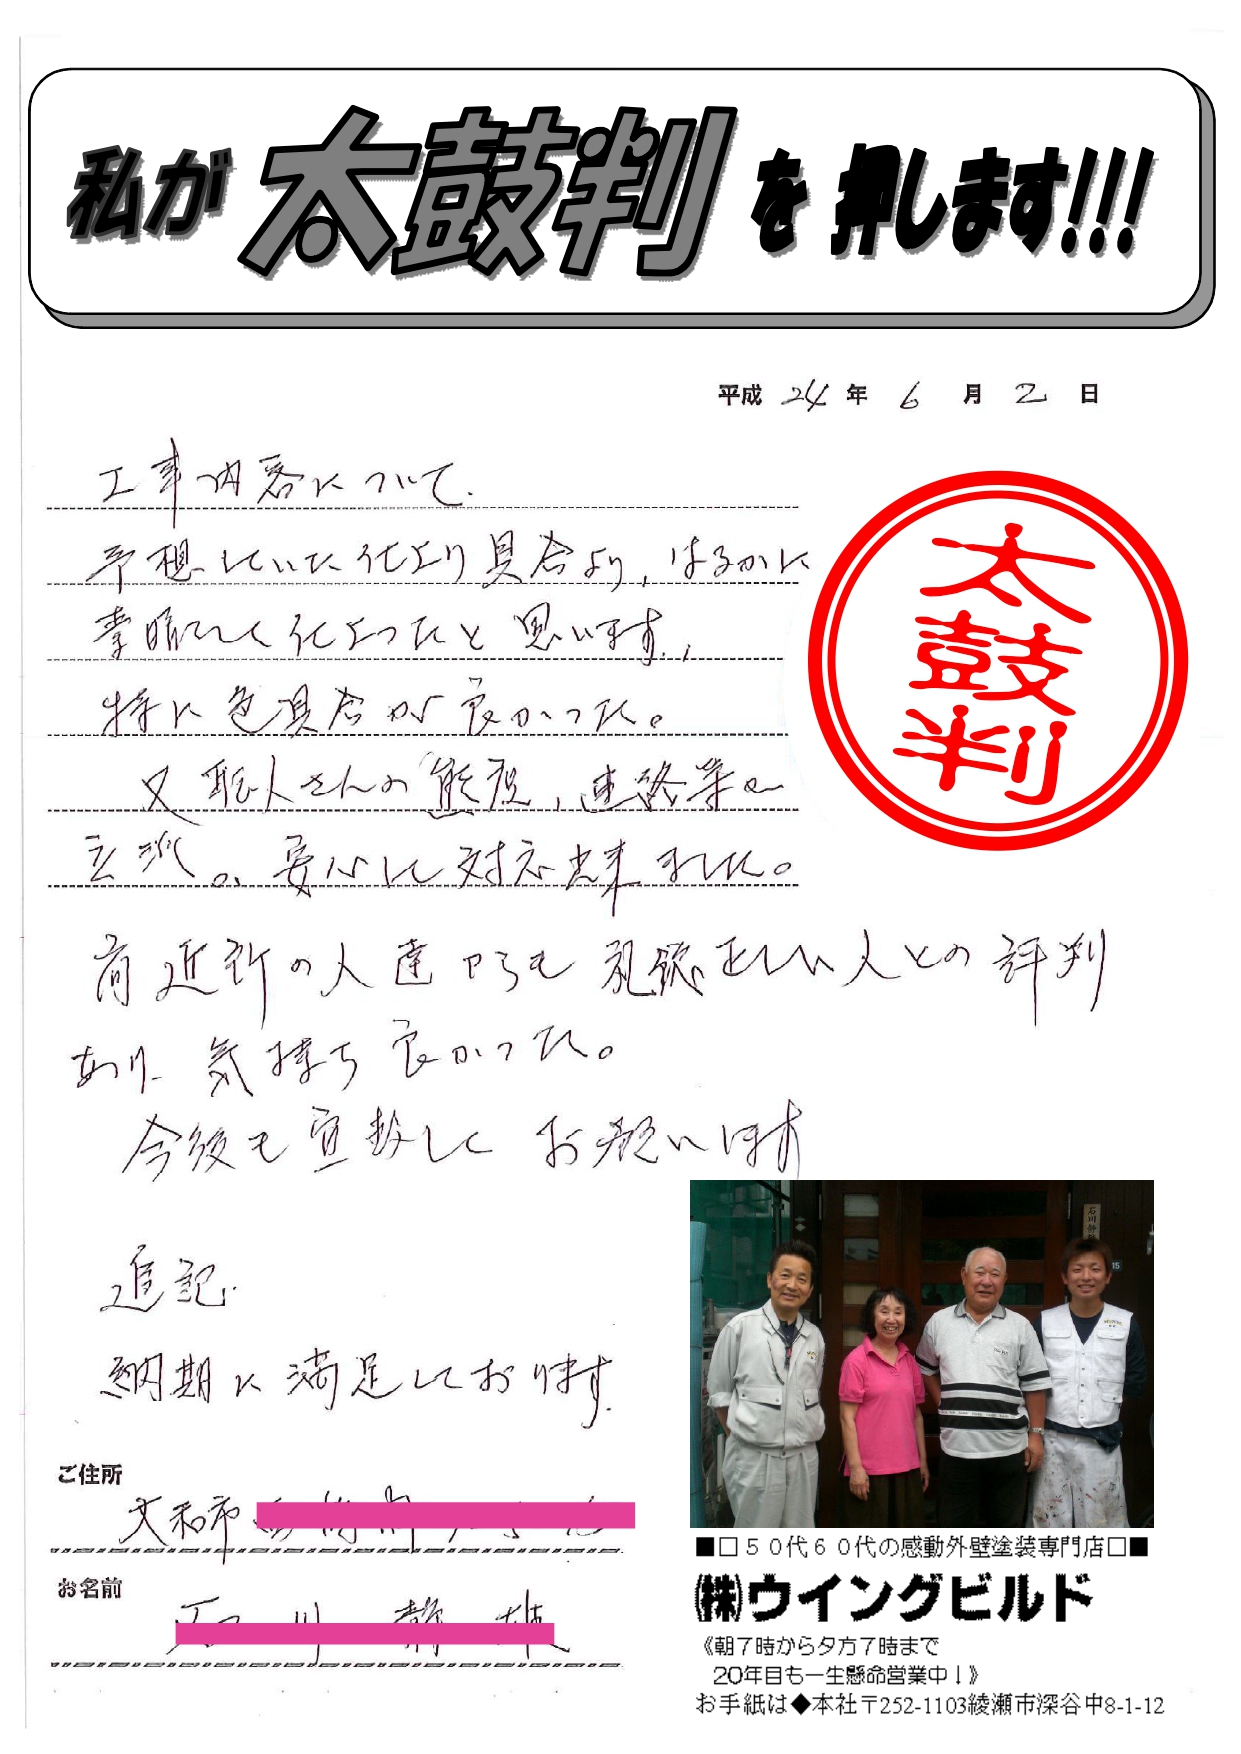 私が太鼓判を押します!!!
平成 24 年 6 月 2 日
工事内容について.
予想していた仕上り具合より,はるかに
素晴しく仕上ったと思います.,
特に色具合が良かった。
又職人さんの態度,連絡等
立派。安心して対応出来ました。
前近所の人達からも礼儀正しい人との評判
あり、気持ち良かった。
今後も宜敷しくお願います
追記.
納期に満足しております.
太鼓判
ご住所
大和市
お名前
■□50代60代の感動外壁塗装専門店□■
㈱ウイングビルド
《朝7時から夕方7時まで
20年目も一生懸命営業中!》
お手紙は◆本社〒252-1103綾瀬市深谷中8-1-12